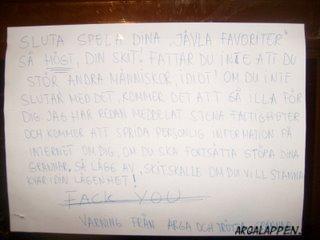 SLUTA SPELA DINA "JÄVLA FAVORITER"
SÅ HÖGT, DIN SKIT! FATTAR DU INTE ATT DU
STÖR ANDRA MÄNNISKOR, IDIOT! OM DU INTE
SLUTAR MED DET, KOMMER DET ATT GÅ ILLA FÖR
DIG. JAG HAR REDAN MEDDELAT STENA FASTIGHETER
OCH KOMMER ATT SPRIDA PERSONLIG INFORMATION PÅ
INTERNET OM DIG, OM DU SKA FORTSÄTTA STÖRA DINA
GRANNAR, SÅ LÄGG AV, SKITSKALLE OM DU VILL STANNA
KVAR I DIN LÄGENHET!
FACK YOU
VARNING FRÅN ARGA OCH TRÖTTA GRANNAR
ARGALAPPEN.